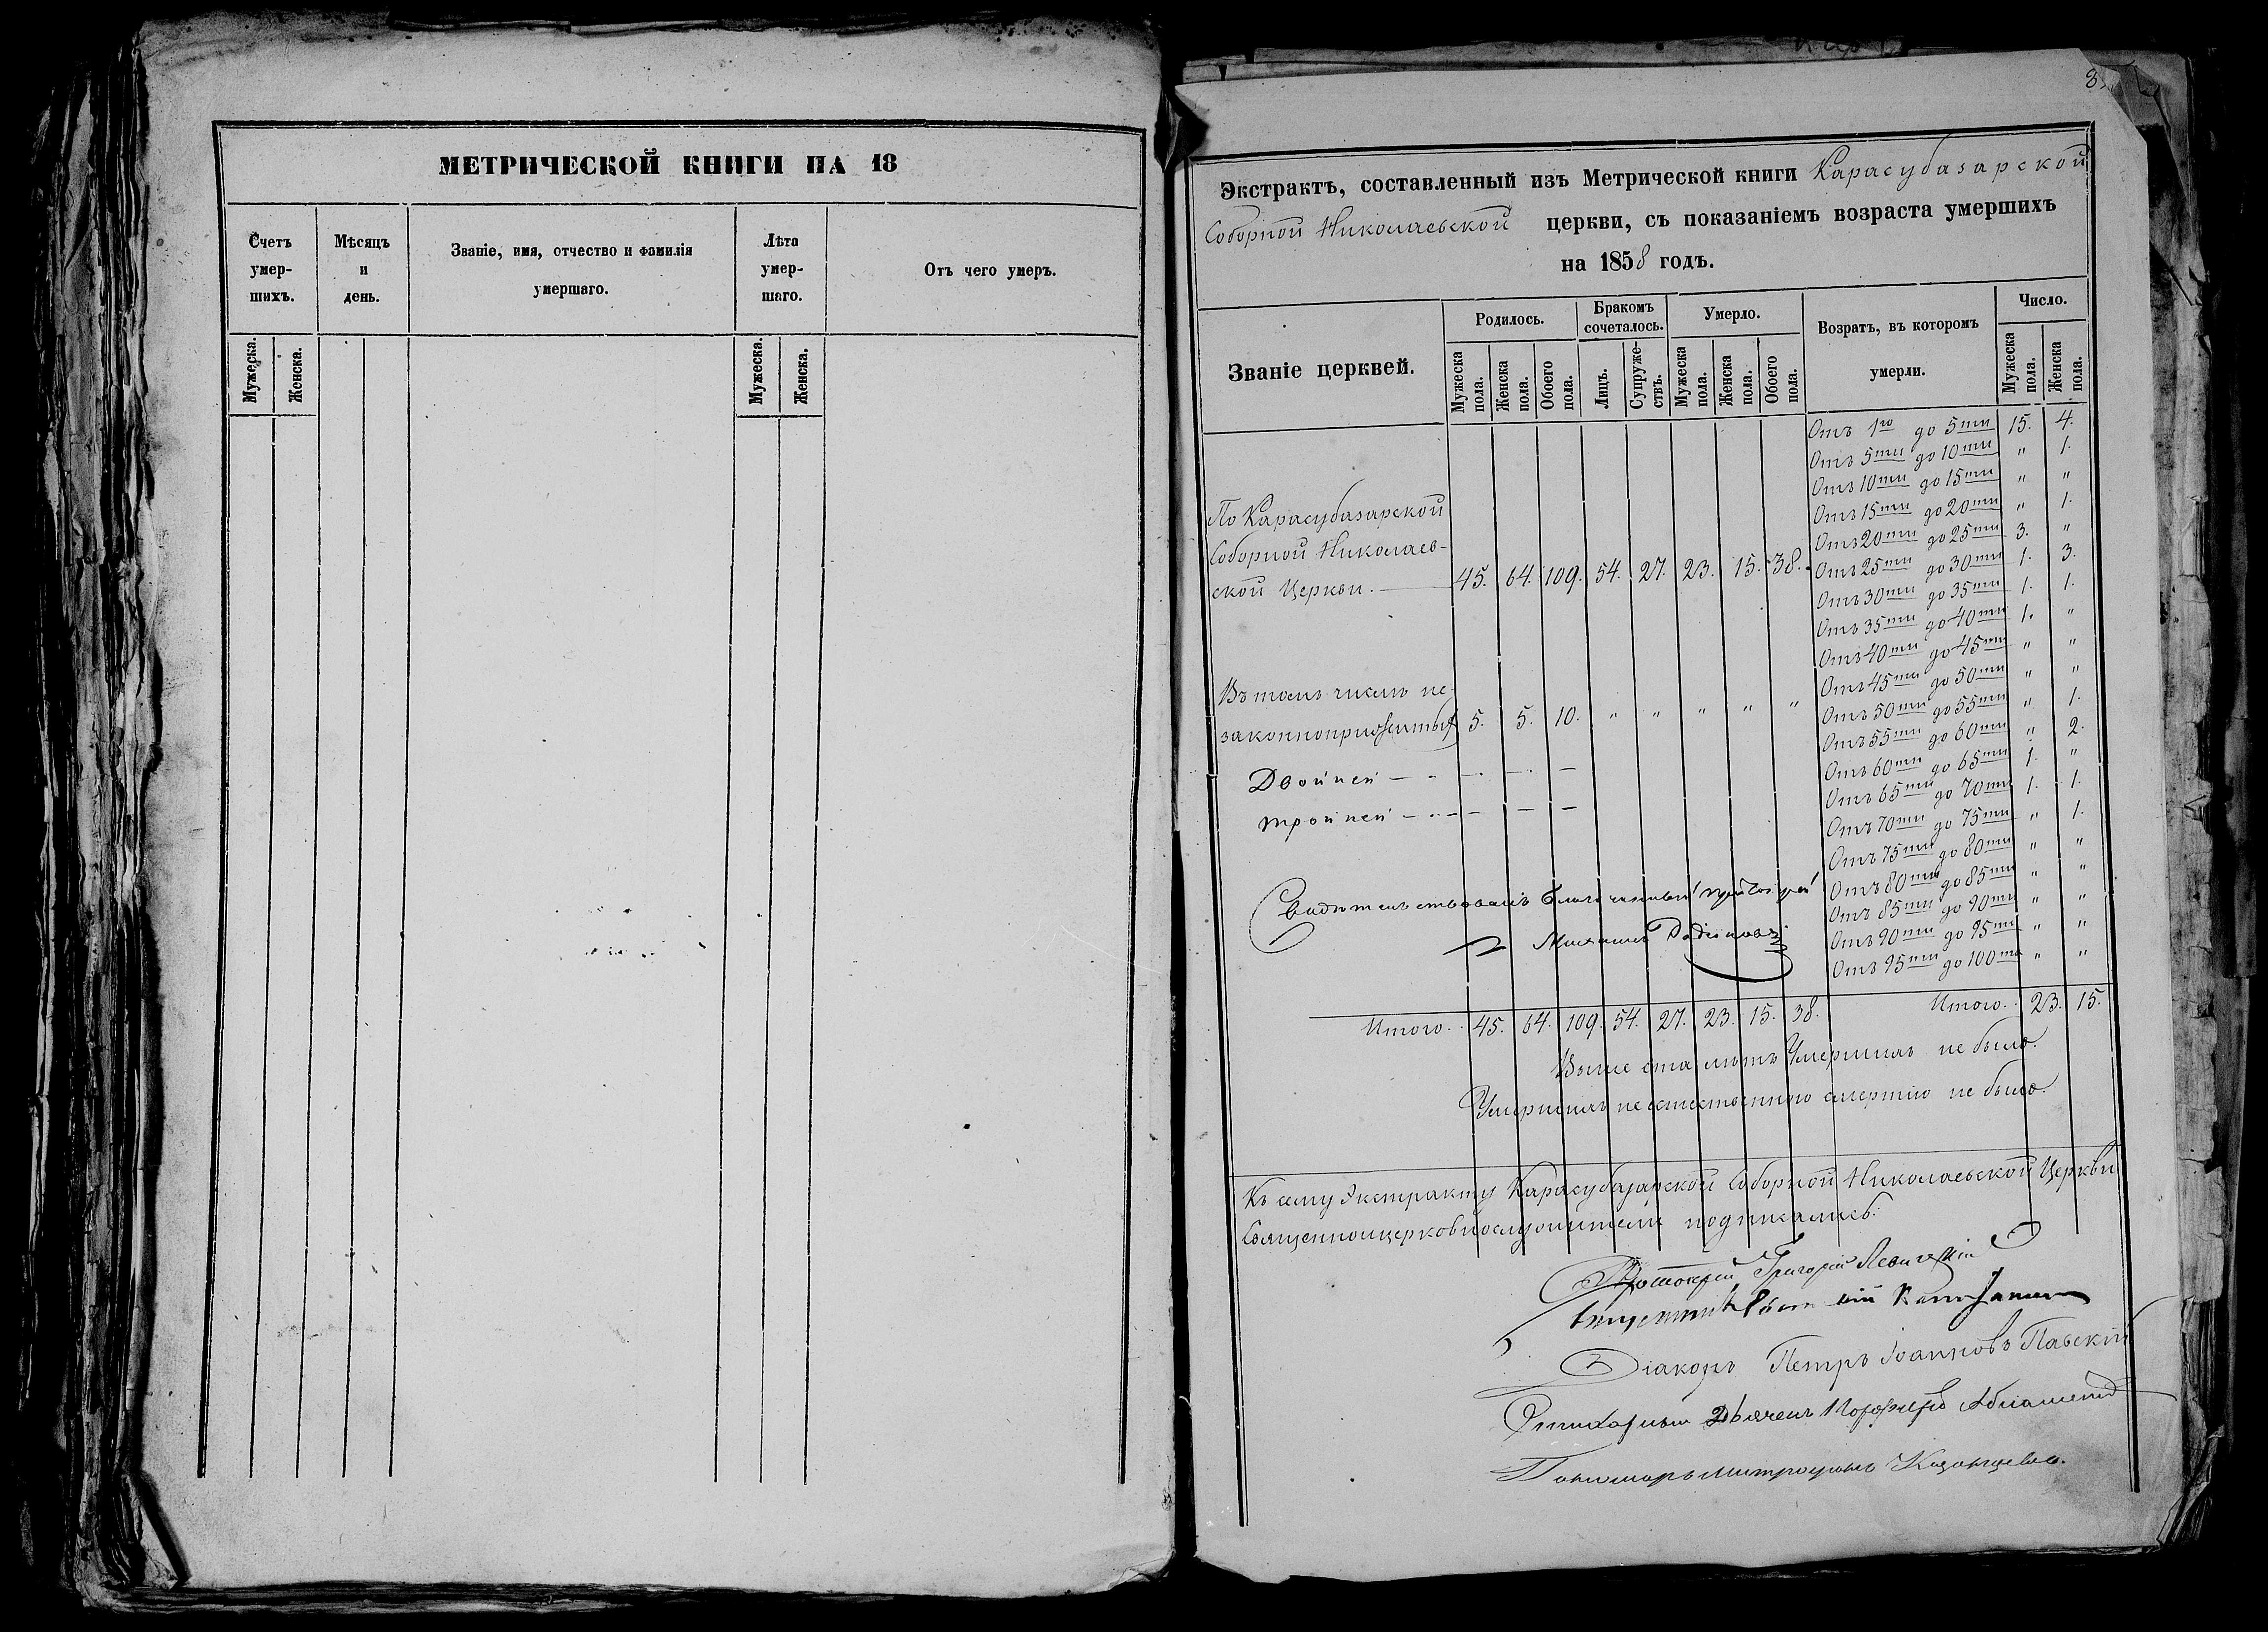 МЕТРИЧЕСКОЙ КНИГИ НА 18
Счетъ умер- шихъ.
Мѣсяцъ и день.
Званіе, имя, отчество и фамилія умершаго.
Лѣта умер- шаго.
Отъ чего умеръ.
Мужеска. Женска. Мужеска. Женска.
Экстрактъ, составленный изъ Метрической книги Карасубазарской
Соборной Николаевской церкви, съ показаніемъ возраста умершихъ
на 1858 годъ.
Званіе церквей.
Родилось.
Бракомъ сочеталось.
Умерло.
Возратъ, въ котором умерли.
Число.
Мужеска пола. Женска пола. Обоего пола. Лицъ. Супруже- ствъ. Мужеска пола. Женска пола. Обоего пола. Мужеска пола. Женска пола.
По Карасубазарской
Соборной Николаев-
ской Церкви. 45. 64. 109. 54. 27. 23. 15. 38.
Въ томъ числѣ не-
законноприжитыхъ 5. 5. 10. " " " " "
Двойней — — — —
тройней — — — —
Отъ 1го до 5ти 15. 4.
Отъ 5ти до 10ти " 1.
Отъ 10ти до 15ти " "
Отъ 15ти до 20ти " 1.
Отъ 20ти до 25ти 3. "
Отъ 25ти до 30ти 1. 3.
Отъ 30ти до 35ти 1. 1.
Отъ 35ти до 40ти 1. "
Отъ 40ти до 45ти " "
Отъ 45ти до 50ти " "
Отъ 50ти до 55ти " 1.
Отъ 55ти до 60ти " 2.
Отъ 60ти до 65ти 1. "
Отъ 65ти до 70ти 1. 1.
Отъ 70ти до 75ти " 1.
Отъ 75ти до 80ти " "
Отъ 80ти до 85ти " "
Отъ 85ти до 90ти " "
Отъ 90ти до 95ти " "
Отъ 95ти до 100та " "
Свидѣтельствовалъ благочинный протоіерей
Михаилъ Родіоновъ
Итого. 45. 64. 109. 54. 27. 23. 15. 38. Итого. 23. 15.
Выше ста лѣтъ Умершихъ не было.
Умершихъ неестественною смертію не было.
Къ сему Экстракту Карасубазарской Соборной Николаевской Церкви
Священноицерковнослужители подписались:
Протоіерей Григорій
Священникъ
Діаконъ Петръ Іоанновъ Павскій
Дьячекъ
Пономарь Митрофанъ Казанцевъ.